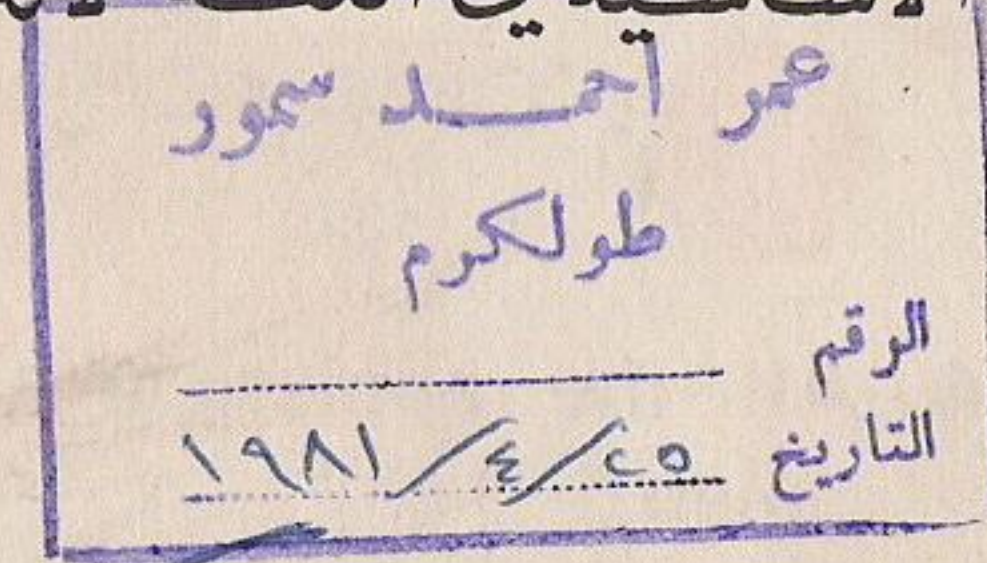 عمر احمد سمور
طولكرم
الرقم
التاريخ ٢٥/٤/١٩٨١